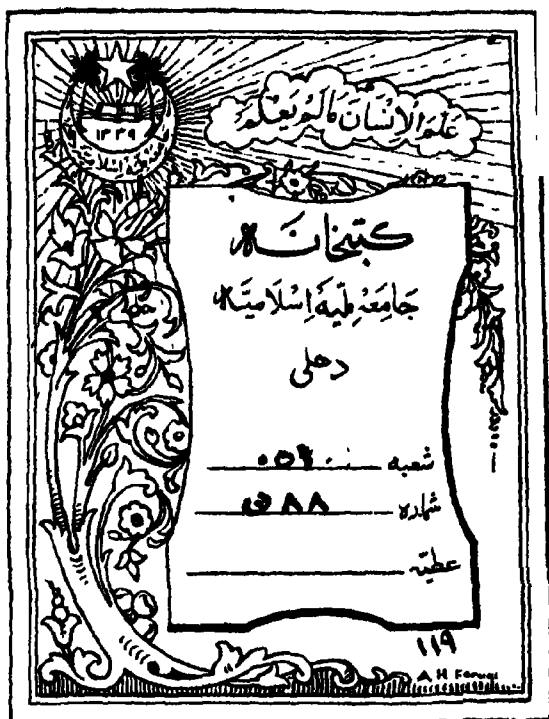 علم الانسان مالم يعلم
۱۳۳۹
کتبخانہ
جامعہ ملیہ اسلامیہ
دهلی
شعبه
شماره ۸۸
عطیہ
۱۱۹
A H Faruqi